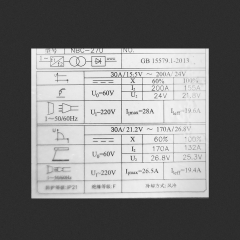 NBC-270 NO.
GB 15579.1-2013
30A/15.5V ~ 200A/24V
X 60% 100%
U₀=60V I₂ 200A 155A
U₂ 24V 21.8V
1~50/60Hz U₁=220V I₁max=28A I₁eff=19.6A
30A/21.2V ~ 170A/26.8V
X 60% 100%
U₀=60V I₂ 170A 132A
U₂ 26.8V 25.3V
1~50/60Hz U₁=220V I₁max=26.5A I₁eff=19.4A
防护等级:IP21 绝缘等级:F 冷却方式:风冷